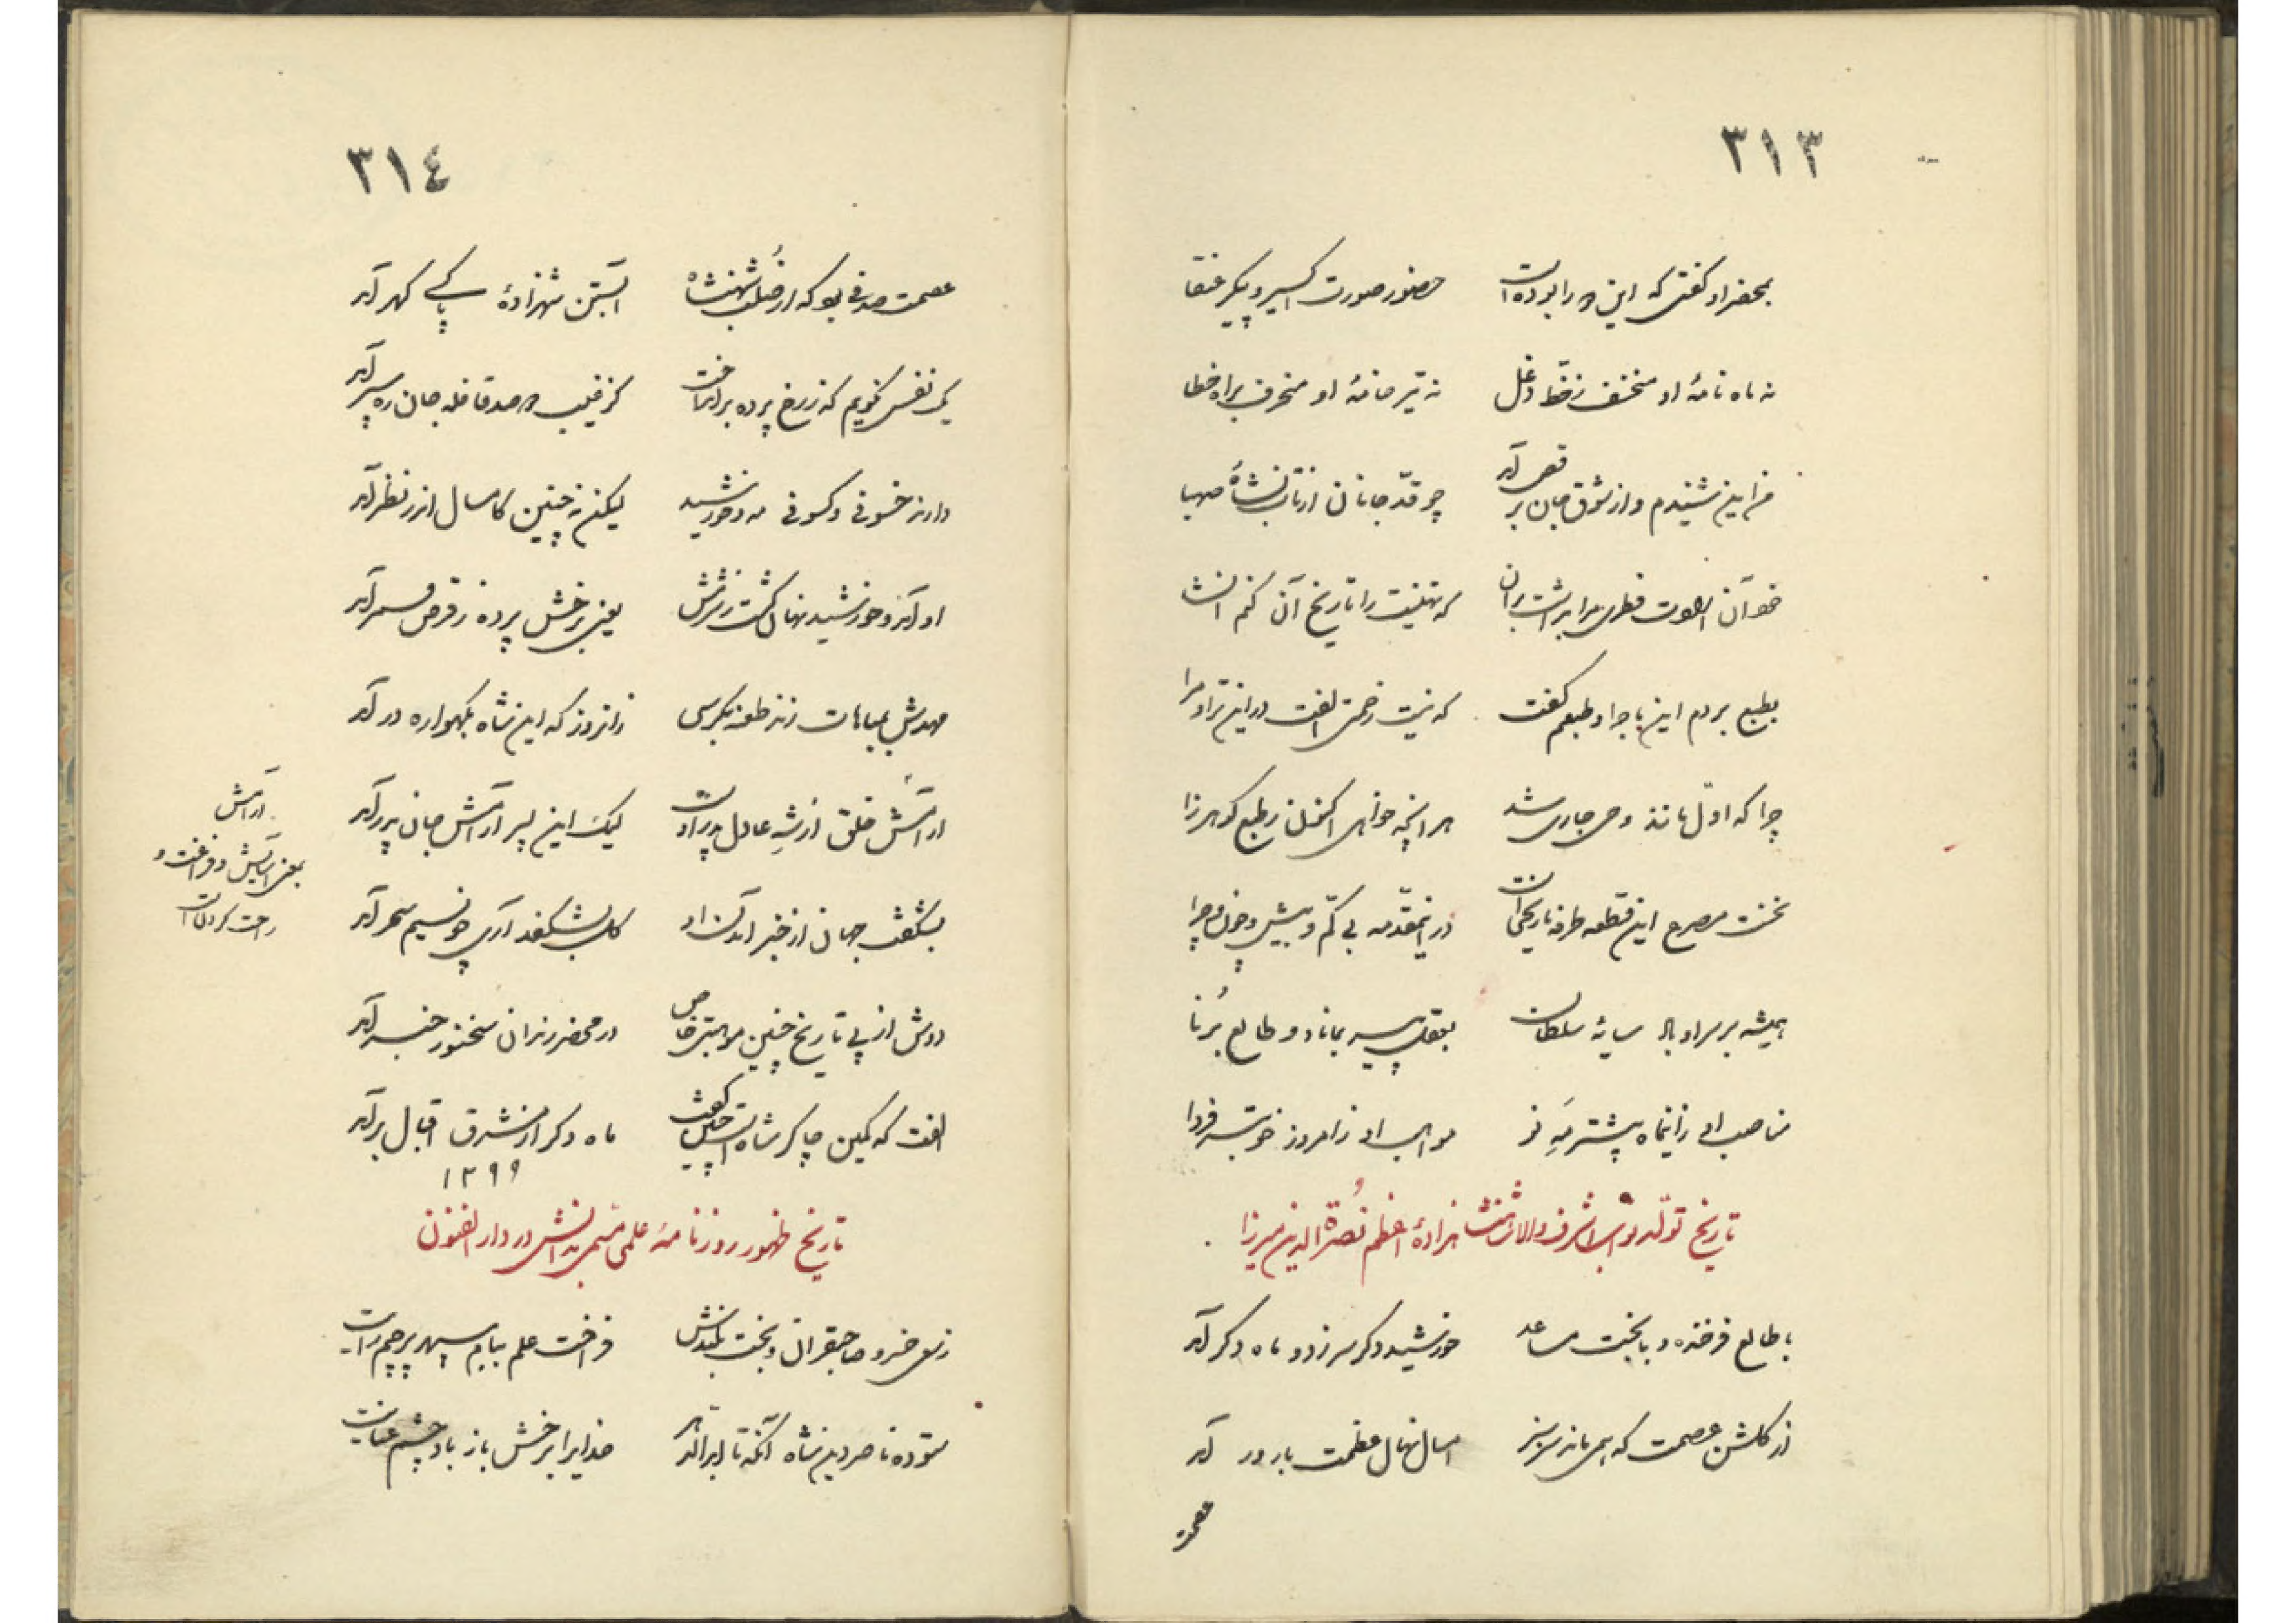 ٣١٣
بمحضر او گفتی که این دو را بوده است حضور صورت اکسیر و پیکر عنقا
نه ماه نامهٔ او منخسف ز خط دغل نه تیر خامهٔ او منحرف براه خطا
من این شنیدم و از شوق جان برقص آمد چو قدّ جانان از تاب نشأهٔ صهبا
که تهنیت را تاریخ آن کنم انشا
بطبع بردم این ماجرا و طبعم گفت که نیست زحمت الفت در این ترا و مرا
چرا که اوّل مانند وحی جاری شد هر آنچه خواهی اکنون ز طبع گوهرزا
نخست مصرع این قطعه طرفه تاریخی است در اینمقدّمه بی کمّ و بیش و چون و چرا
همیشه بر سر او باد سایهٔ سلطان بعقل پیر بماناد و طالع بُرنا
مناصب او ز اینماه بیشتر مَهِ نو مواهب او ز امروز خوبتر فردا
تاریخ تولّد نواب اشرف والا شاهنشاهزادهٔ اعظم نُصرة الدین میرزا
با طالع فرخنده و با بخت مساعد خورشید دگر سر زد و ماه دگر آمد
از گلشن عصمت که همی ماند سرسبز امسال نهال عظمت بارور آمد
عصمت
٣١٤
عصمت صدفی بود که از صُلب شهنشاه آبستن شهزادهٔ پاکی گهر آمد
یک نفس نگویم که ز رخ پرده برانداخت کز غیب دو صد قافله جان ره سپر آمد
دارند خسوفی و کسوفی مه و خورشید لیکن نه چنین کامسال اندر نظر آمد
او آمد و خورشید نهان گشت ز شرمش یعنی برخش پرده ز قرص قمر آمد
مهدش بمباهات زند طعنه بکرسی زانروز که این شاه بگهواره در آمد
آرامش خلق از شه عادل پدر اوست لیک این پسر آرامش جان پدر آمد
بشگفت جهان از خبر آمدن او گل بشگفد آری چو نسیم سحر آمد
دوش از پی تاریخ چنین موهبتی خاص در محضر رندان سخنور خبر آمد
الفت که کمین چاکر شاه است چنین گفت ماه دگر از مشرق اقبال بر آمد
١٢٩٩
تاریخ ظهور روزنامهٔ علمی مسمّی بدانش در دار الفنون
ز سعی خسرو صاحبقران و بخت بلندش فراخت علم ببام سپهر پرچم رایت
ستوده ناصردین شاه آنکه تا ابد الدهر خدایرا برخش باز باد چشم عنایت
آرامش
بمعنی آسایش و فراغت و
راحت کردن است